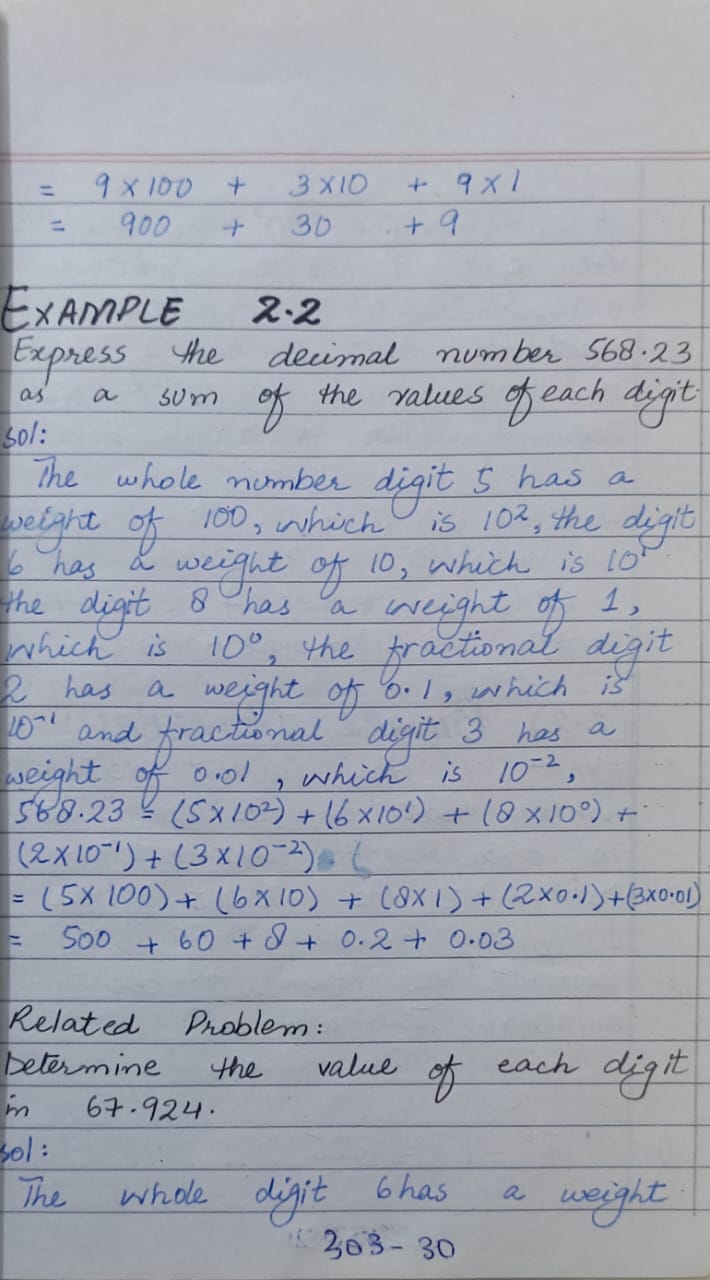 = 9 × 100 + 3 × 10 + 9 × 1
= 900 + 30 + 9
EXAMPLE 2.2
Express the decimal number 568.23
as a sum of the values of each digit.
sol:
The whole number digit 5 has a
weight of 100, which is 10², the digit
6 has a weight of 10, which is 10¹
the digit 8 has a weight of 1,
which is 10⁰, the fractional digit
2 has a weight of 0.1, which is
10⁻¹ and fractional digit 3 has a
weight of 0.01, which is 10⁻²,
568.23 = (5×10²) + (6×10¹) + (8×10⁰) +
(2×10⁻¹) + (3×10⁻²)
= (5×100) + (6×10) + (8×1) + (2×0.1) + (3×0.01)
= 500 + 60 + 8 + 0.2 + 0.03
Related Problem:
Determine the value of each digit
in 67.924.
sol:
The whole digit 6 has a weight
303-30